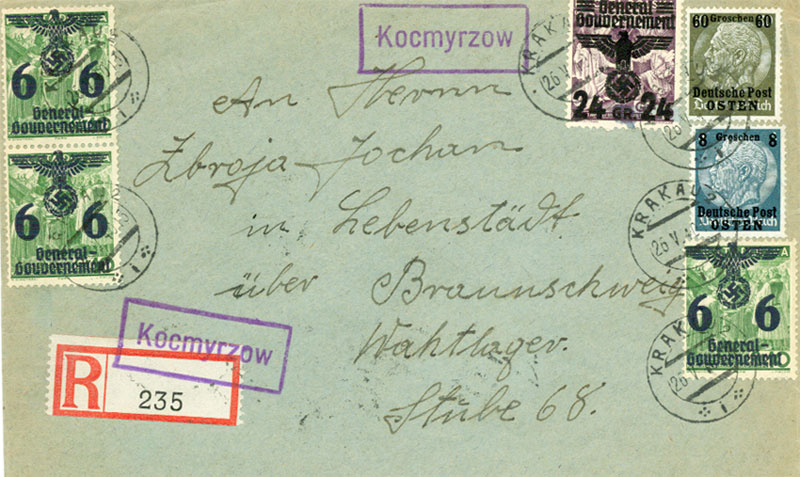 Kocmyrzow
6 6
General-
Gouvernement
6 6
General-
Gouvernement
General
Gouvernement
24 GR. 24
60 Groschen 60
Deutsche Post
OSTEN
8 Groschen 8
Deutsche Post
OSTEN
6 6
General-
Gouvernement
KRAKAU
26 V
KRAKAU
26 V
KRAKAU
26 V
An Herrn
Zbroja Jochan
in Lebenstädt
über Braunschweig
Wahtlager.
Stube 68.
Kocmyrzow
R 235